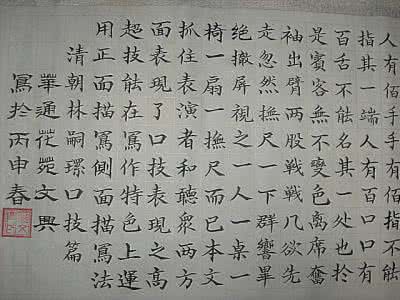 人有佰手手有佰指不能
指其一端人有百口口有
百舌不能名其一处也於
是賓客無不變色離席奮
袖出臂两股戰戰几欲先
走忽然撫尺一下群響畢
絕撤屏視之一人一桌一
椅一扇一撫尺而已本文
抓住表演者和聽眾两方
面表現了口技表現之高
超技能在寫作特色上運
用正面描寫側面描寫法
清朝林嗣環口技篇
華通花苑文興
寫於丙申春